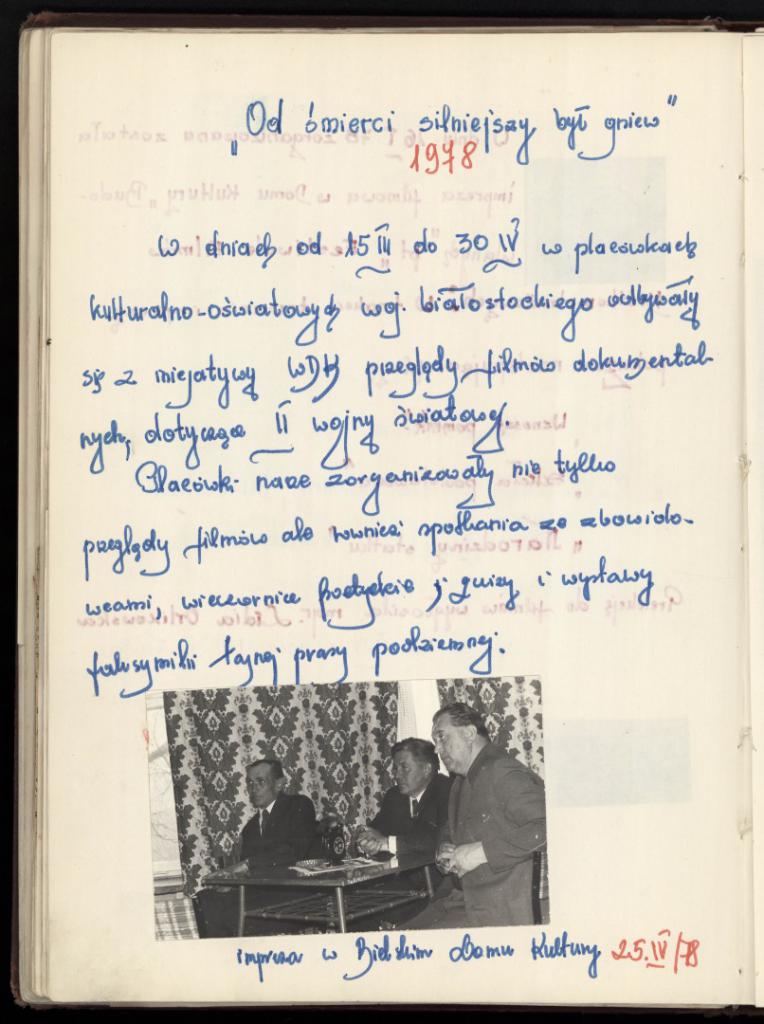 „Od śmierci silniejszy był gniew"
1978
W dniach od 15 III do 30 IV w placówkach
kulturalno-oświatowych woj. białostockiego odbywały
się z inicjatywy WDK przeglądy filmów dokumental-
nych, dotyczące II wojny światowej.
Placówki nasze zorganizowały nie tylko
przeglądy filmów ale również spotkania ze zbowido-
wcami, wieczornice poetyckie, quizy i wystawy
faksymilii tajnej prasy podziemnej.
impreza w Bielskim Domu Kultury 25.IV/78